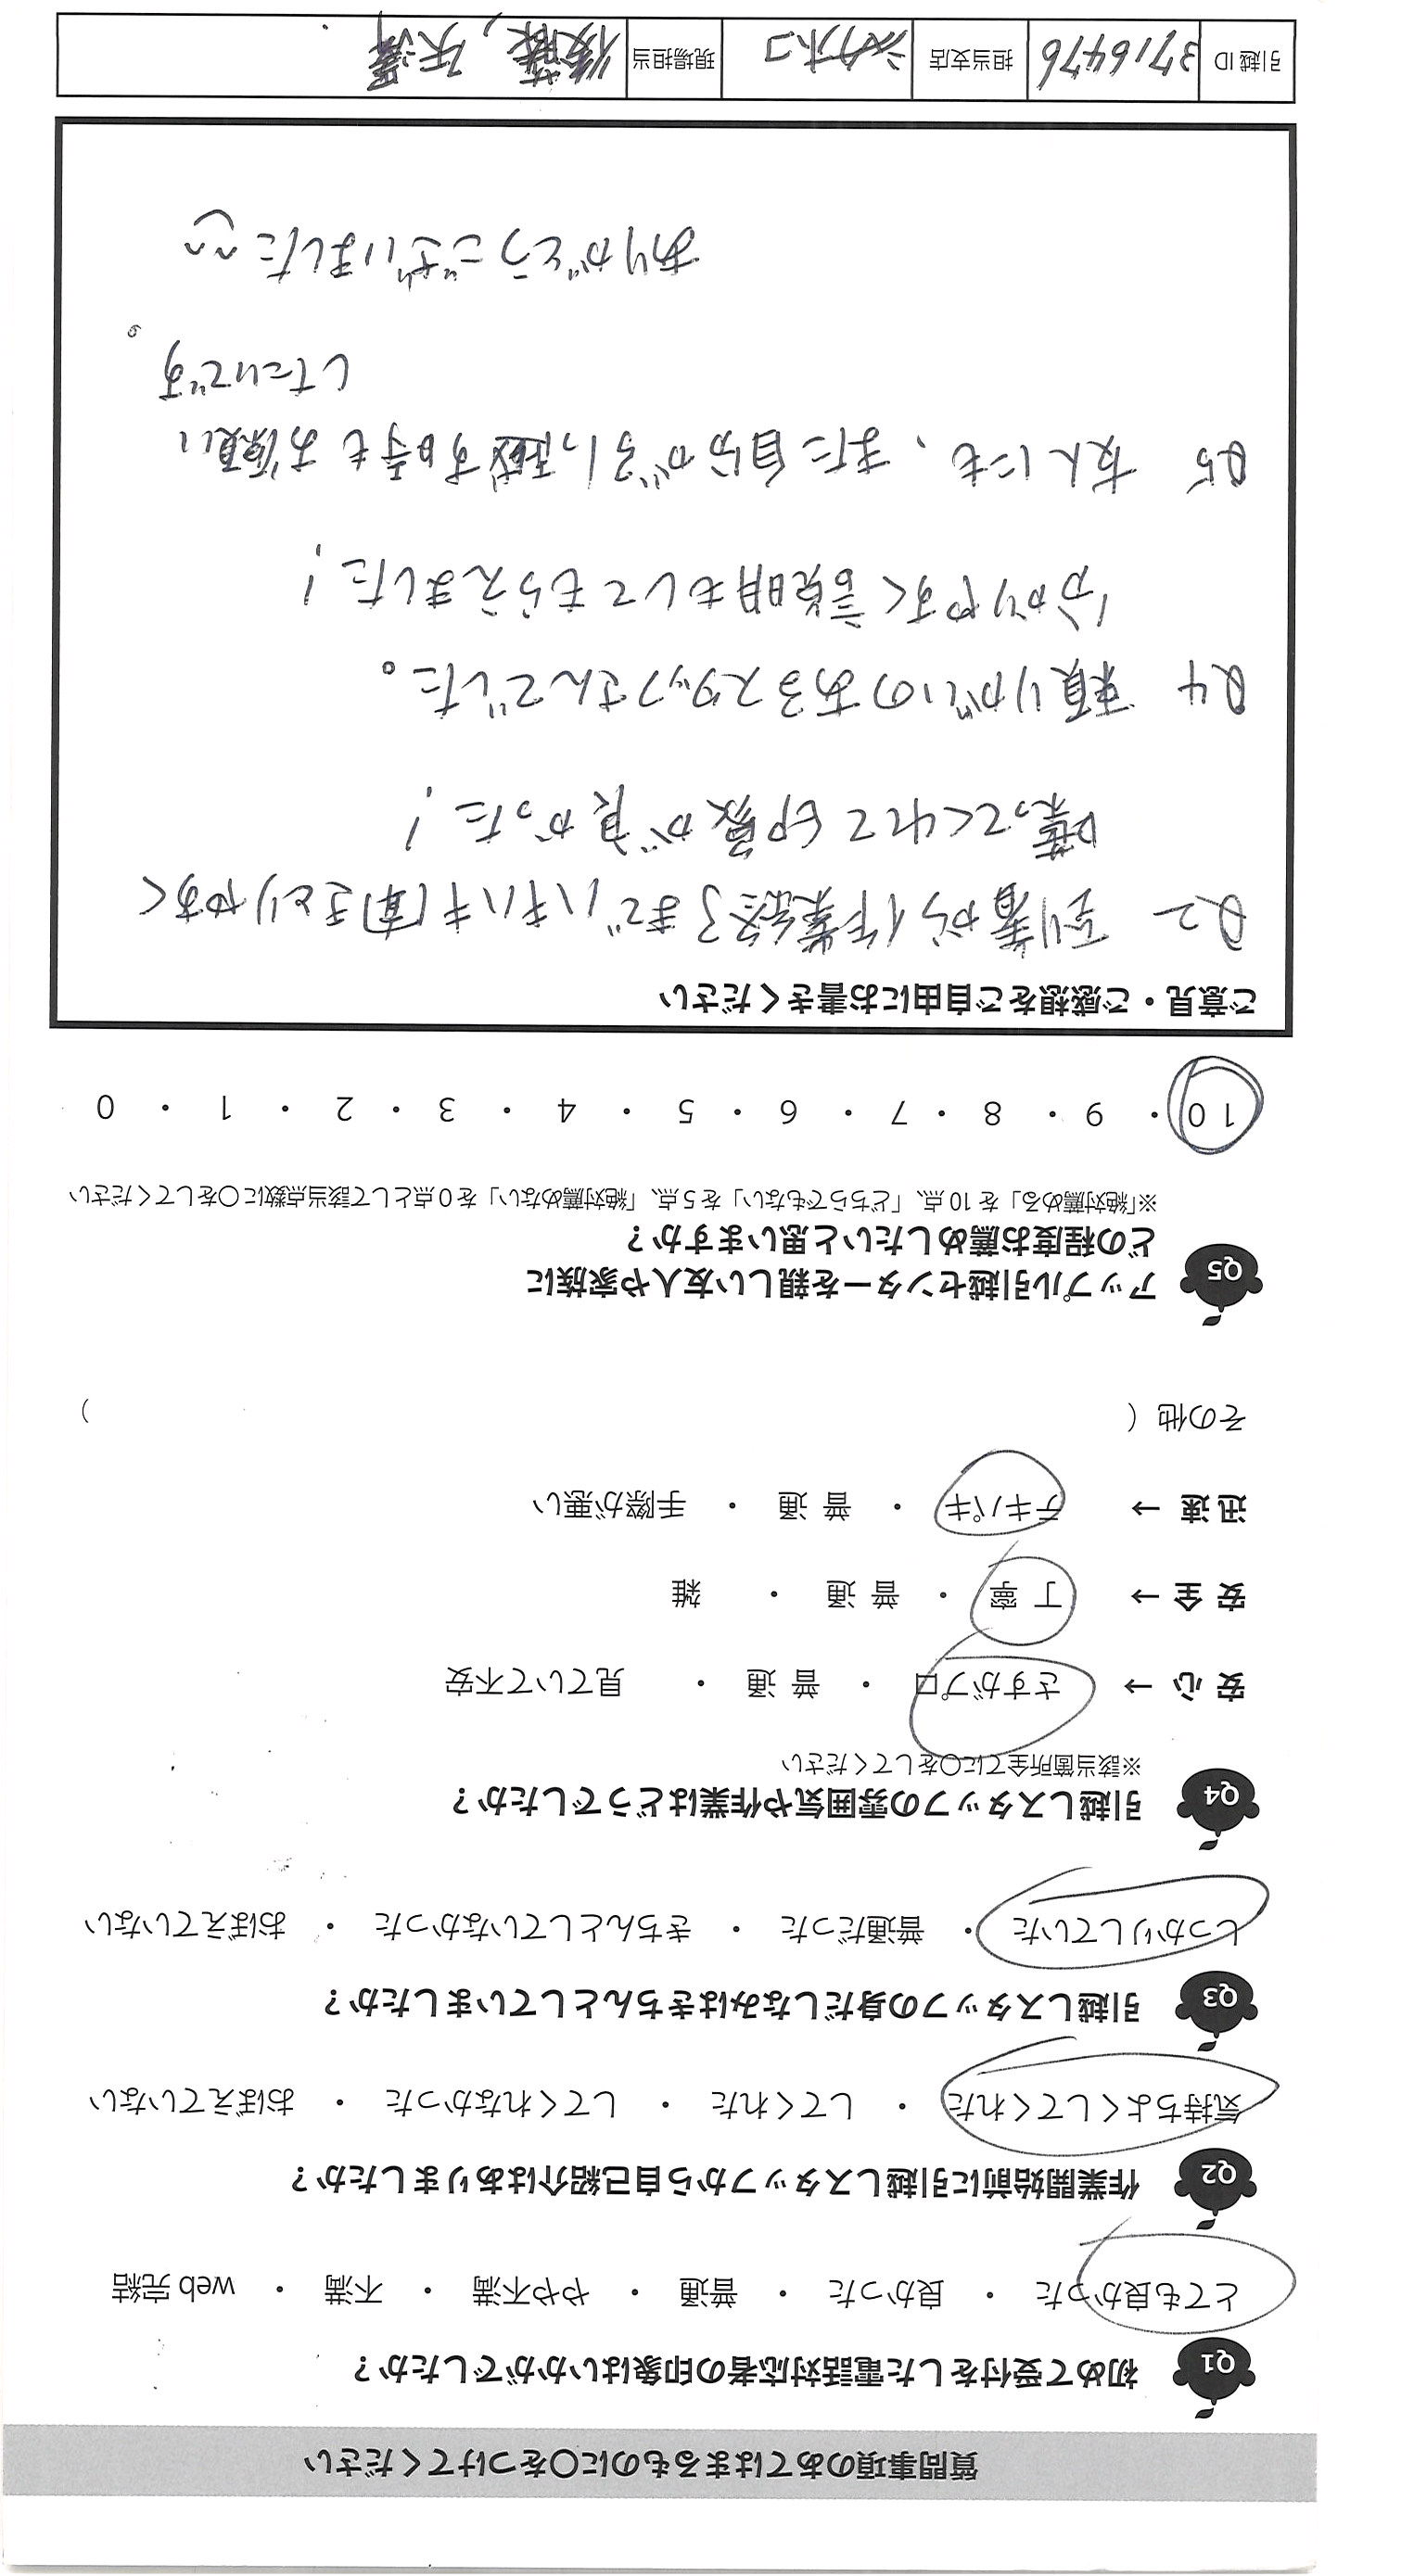 質問事項のあてはまるものに○をつけてください
Q1 初めて受付をした電話対応者の印象はいかがでしたか？
とても良かった ・ 良かった ・ 普通 ・ やや不満 ・ 不満 ・ web 完結
Q2 作業開始前に引越しスタッフから自己紹介はありましたか？
気持ちよくしてくれた ・ してくれた ・ してくれなかった ・ おぼえていない
Q3 引越しスタッフの身だしなみはきちんとしていましたか？
しっかりしていた ・ 普通だった ・ きちんとしていなかった ・ おぼえていない
Q4 引越しスタッフの雰囲気や作業はどうでしたか？
※該当箇所全てに○をしてください
安心 → さすがプロ ・ 普通 ・ 見ていて不安
安全 → 丁寧 ・ 普通 ・ 雑
迅速 → テキパキ ・ 普通 ・ 手際が悪い
その他（ ）
Q5 アップル引越センターを親しい友人や家族に
どの程度お薦めしたいと思いますか？
※「絶対薦める」を 10 点、「どちらでもない」を 5 点、「絶対薦めない」を 0 点として該当点数に○をしてください
10 ・ 9 ・ 8 ・ 7 ・ 6 ・ 5 ・ 4 ・ 3 ・ 2 ・ 1 ・ 0
ご意見・ご感想をご自由にお書きください
Q2 到着から作業終了まで ハキハキ聞きとりやすく
喋ってくれて印象が良かった！
Q4 頼りがいのあるスタッフさんでした。
分かりやすく説明もしてもらえました！
Q5 友人にも、また自分が引っ越す時もお願い
したいです。
ありがとうございました
引越 ID 3716476 担当支店 現場担当 後藤,